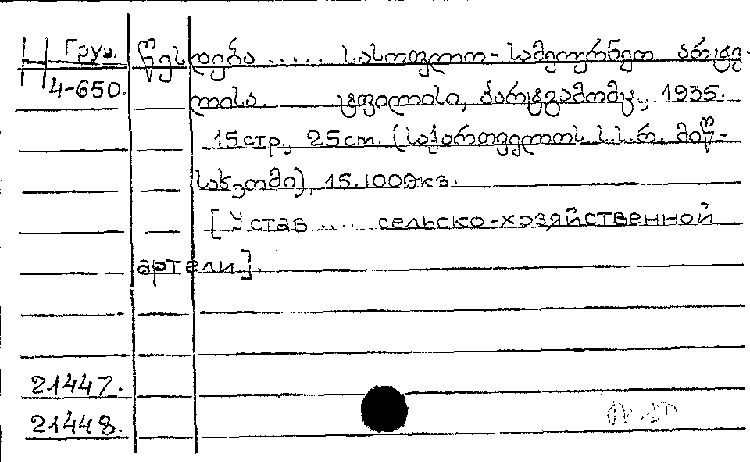 Груз. წესდება ..... სასოფლო-სამეურნეო არტე-
4-650. ლისა. ტფილისი, ქარტგამომც., 1935.
15стр., 25см. (საქართველოს ს.ს.რ. მიწ-
სახკომი), 15.100экз.
[Устав .... сельско-хозяйственной
артели].
21447.
21448.